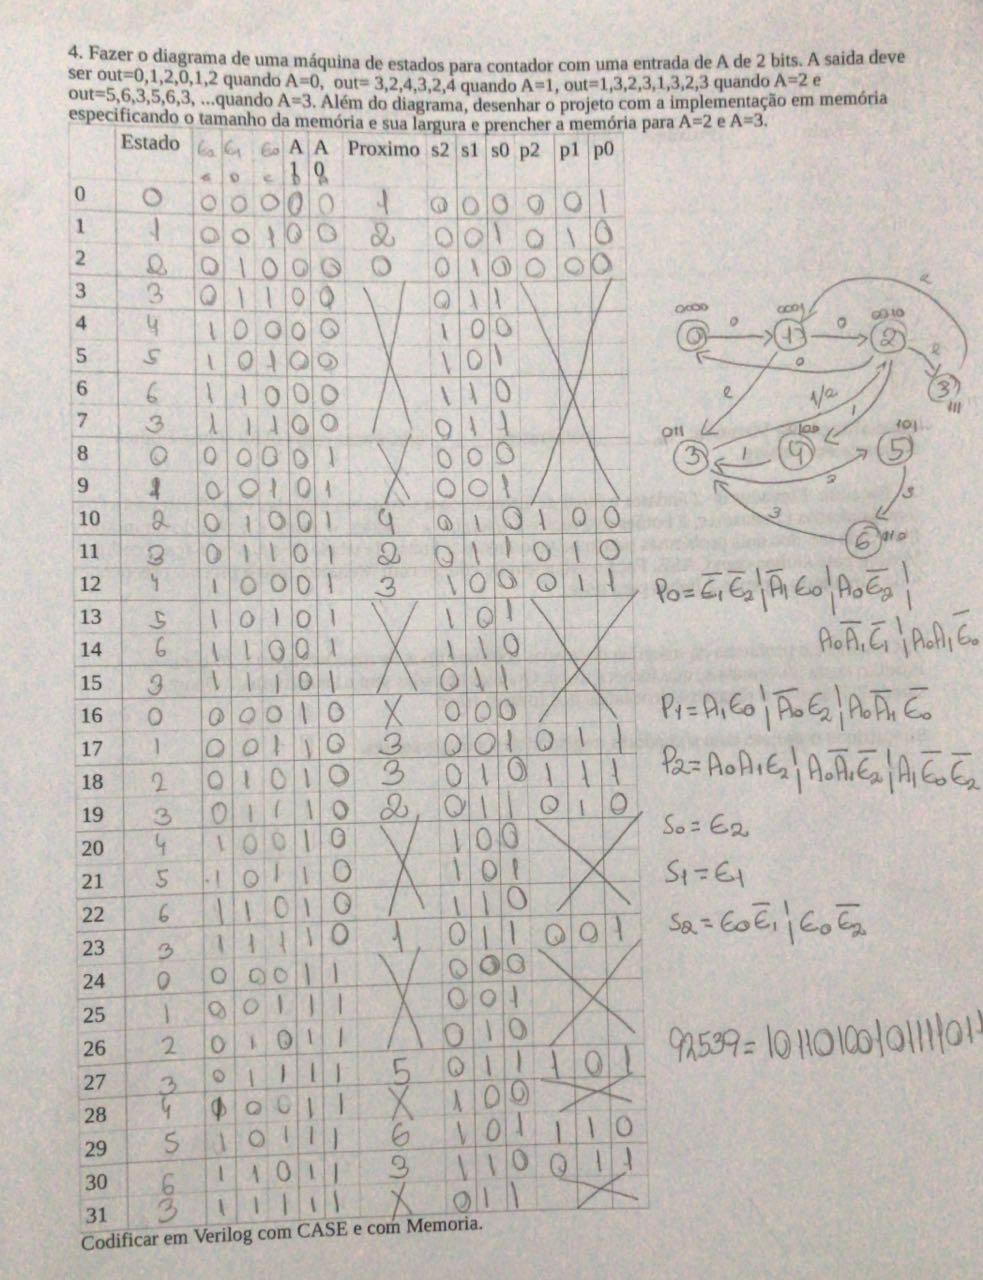 4. Fazer o diagrama de uma máquina de estados para contador com uma entrada de A de 2 bits. A saida deve
ser out=0,1,2,0,1,2 quando A=0, out= 3,2,4,3,2,4 quando A=1, out=1,3,2,3,1,3,2,3 quando A=2 e
out=5,6,3,5,6,3, ...quando A=3. Além do diagrama, desenhar o projeto com a implementação em memória
especificando o tamanho da memória e sua largura e prencher a memória para A=2 e A=3.
Estado A A Proximo s2 s1 s0 p2 p1 p0
0 0 0 0 0 0 0 1 0 0 0 0 0 1
1 1 0 0 1 0 0 2 0 0 1 0 1 0
2 2 0 1 0 0 0 0 0 1 0 0 0 0
3 3 0 1 1 0 0 0 1 1
4 4 1 0 0 0 0 1 0 0
5 5 1 0 1 0 0 1 0 1
6 6 1 1 0 0 0 1 1 0
7 3 1 1 1 0 0 0 1 1
8 0 0 0 0 0 1 0 0 0
9 1 0 0 1 0 1 0 0 1
10 2 0 1 0 0 1 4 0 1 0 1 0 0
11 3 0 1 1 0 1 2 0 1 1 0 1 0
12 4 1 0 0 0 1 3 1 0 0 0 1 1
13 5 1 0 1 0 1 1 0 1
14 6 1 1 0 0 1 1 1 0
15 3 1 1 1 0 1 0 1 1
16 0 0 0 0 1 0 X 0 0 0
17 1 0 0 1 1 0 3 0 0 1 0 1 1
18 2 0 1 0 1 0 3 0 1 0 1 1 1
19 3 0 1 1 1 0 2 0 1 1 0 1 0
20 4 1 0 0 1 0 1 0 0
21 5 1 0 1 1 0 1 0 1
22 6 1 1 0 1 0 1 1 0
23 3 1 1 1 1 0 1 0 1 1 0 0 1
24 0 0 0 0 1 1 0 0 0
25 1 0 0 1 1 1 0 0 1
26 2 0 1 0 1 1 0 1 0
27 3 0 1 1 1 1 5 0 1 1 1 0 1
28 4 1 0 0 1 1 X 1 0 0
29 5 1 0 1 1 1 6 1 0 1 1 1 0
30 6 1 1 0 1 1 3 1 1 0 0 1 1
31 3 1 1 1 1 1 X 0 1 1
Codificar em Verilog com CASE e com Memoria.
0000 0001 0010
0 0 1 0 2
0 2 2 2
3 111
2 1/2 1
011 100 101
3 1 4 2 5
3 3
6 110
P0 = Ē1Ē2 ¦ Ā1E0 ¦ A0Ē2 ¦
A0Ā1Ē1 ¦ A0A1Ē0
P1 = A1E0 ¦ Ā0E2 ¦ A0Ā1Ē0
P2 = A0A1E2 ¦ A0Ā1Ē2 ¦ A1Ē0Ē2
S0 = E2
S1 = E1
S2 = E0Ē1 ¦ E0Ē2
92539 = 10110100101111011